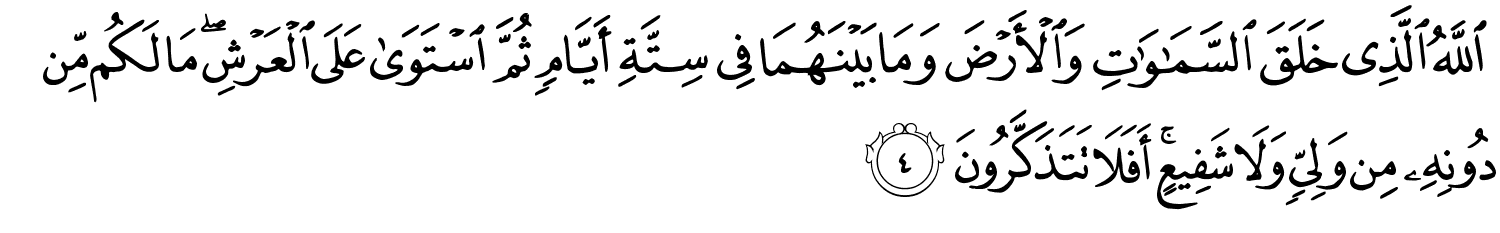 ٱللَّهُ ٱلَّذِى خَلَقَ ٱلسَّمَٰوَٰتِ وَٱلْأَرْضَ وَمَا بَيْنَهُمَا فِى سِتَّةِ أَيَّامٍ ثُمَّ ٱسْتَوَىٰ عَلَى ٱلْعَرْشِ ۖ مَا لَكُم مِّن
دُونِهِۦ مِن وَلِىٍّ وَلَا شَفِيعٍ ۚ أَفَلَا تَتَذَكَّرُونَ ٤